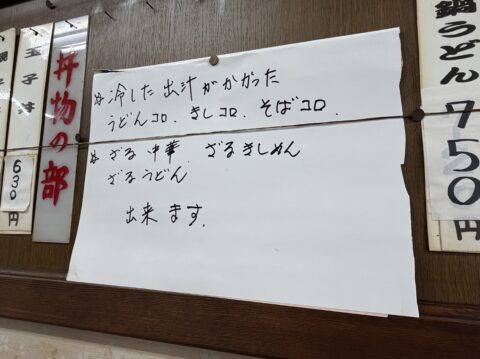 玉子丼
630円
丼物の部
〃冷した出汁がかかった
うどんコロ、きしコロ、そばコロ、
〃ざる中華、ざるきしめん
ざるうどん
出来ます。
鍋うどん 750円